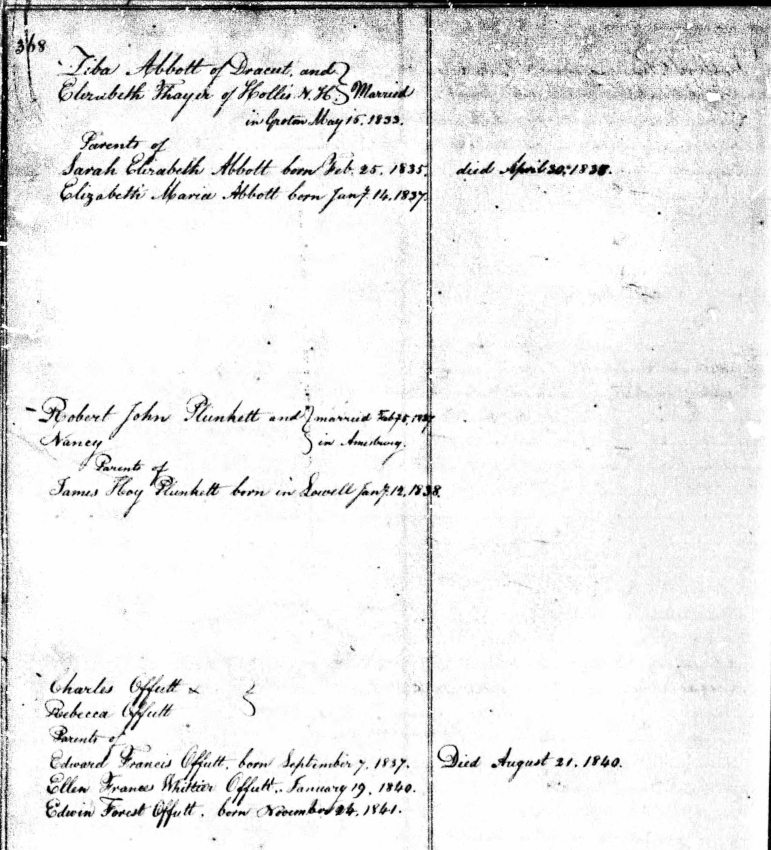 368
Tiba Abbott of Dracut, and
Elizabeth Thayer of Hollis N.H. Married
in Groton May 15, 1833.
Parents of
Sarah Elizabeth Abbott born Feb. 25, 1835. died April 30, 1835.
Elizabeth Maria Abbott born Jany. 14, 1837.
Robert John Plunkett and married Feb. 1837
Nancy in Amesbury.
Parents of
James Hoy Plunkett born in Lowell Jany. 12, 1838.
Charles Offutt &
Rebecca Offutt
Parents of
Edward Francis Offutt, born September 7, 1837. Died August 21, 1840.
Ellen Frances Whittier Offutt, January 19, 1840.
Edwin Forest Offutt, born November 24, 1841.